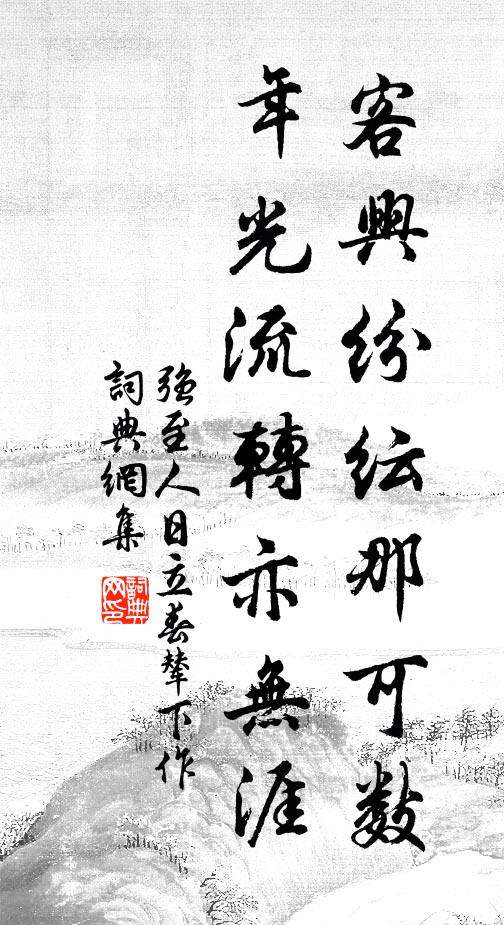 客興紛紜那可數
年光流轉亦無涯
強至人日立春輦下作
詞典網集
詞典
网印